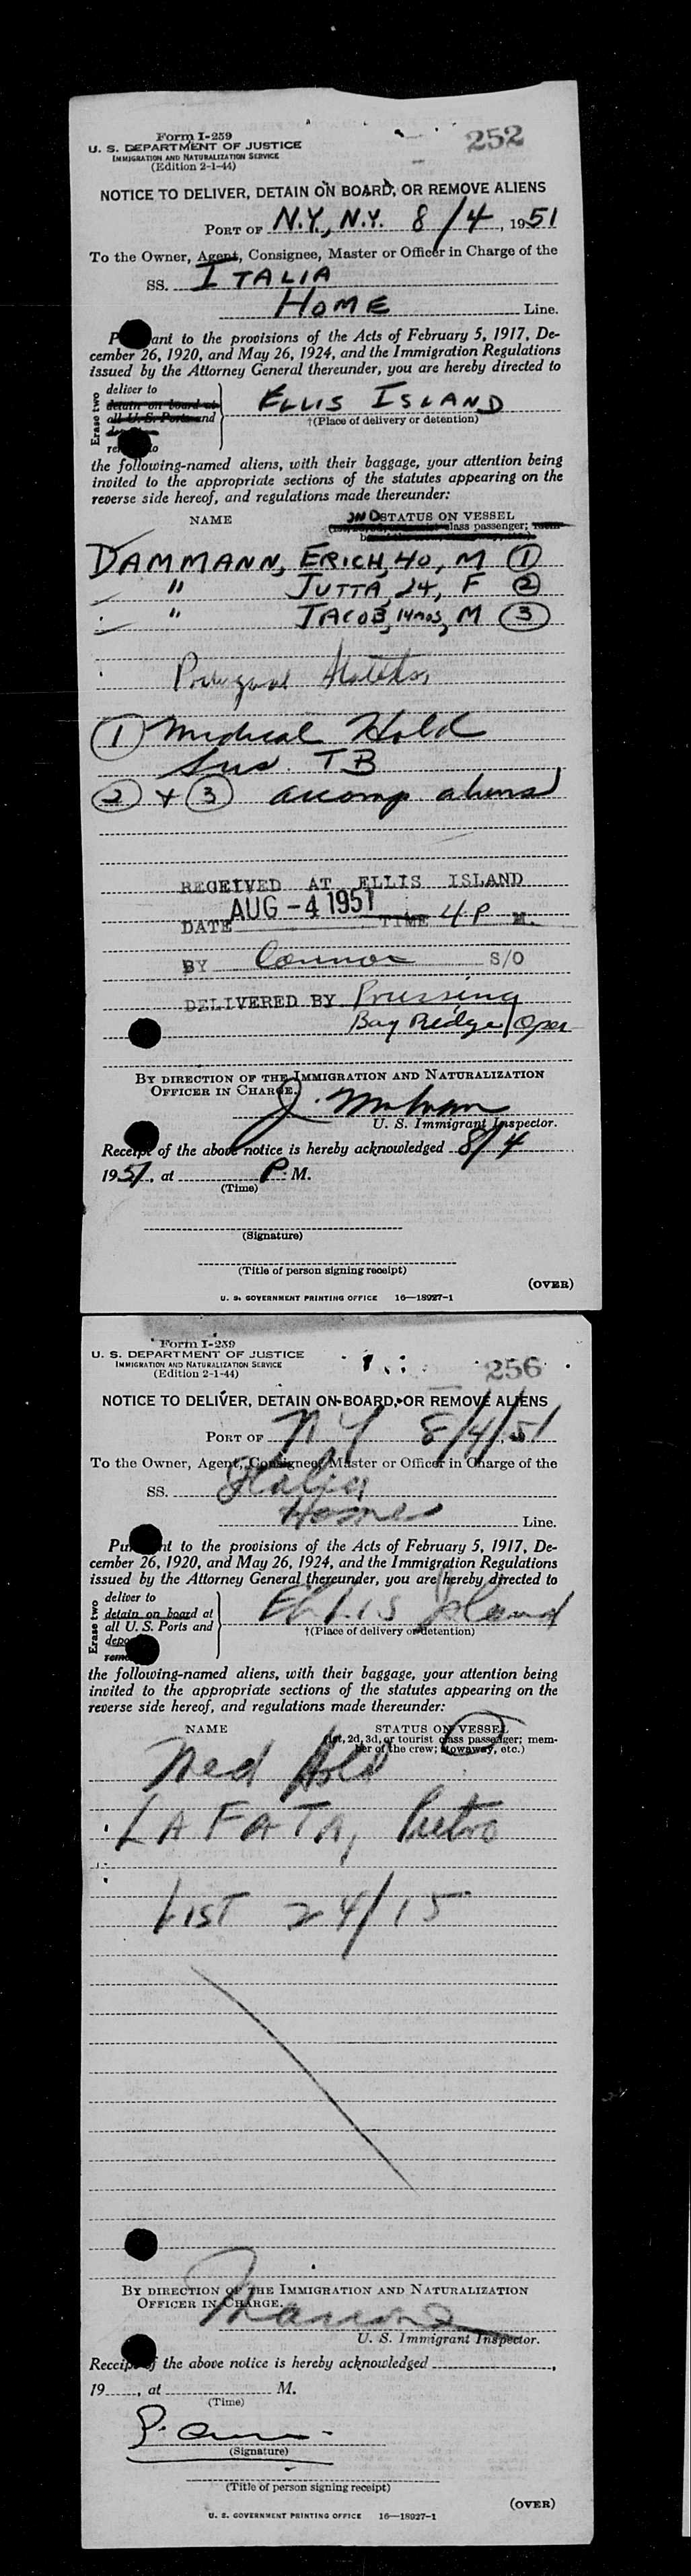 Form I-259
U. S. DEPARTMENT OF JUSTICE
IMMIGRATION AND NATURALIZATION SERVICE
(Edition 2-1-44)
252
NOTICE TO DELIVER, DETAIN ON BOARD, OR REMOVE ALIENS
PORT OF N.Y., N.Y. 8/4, 1951
To the Owner, Agent, Consignee, Master or Officer in Charge of the
SS. ITALIA
HOME Line.
P ant to the provisions of the Acts of February 5, 1917, De-
cember 26, 1920, and May 26, 1924, and the Immigration Regulations
issued by the Attorney General thereunder, you are hereby directed to
Erase two
deliver to
detain on board at
all U. S. Ports and
ELLIS ISLAND
†(Place of delivery or detention)
the following-named aliens, with their baggage, your attention being
invited to the appropriate sections of the statutes appearing on the
reverse side hereof, and regulations made thereunder:
NAME
2ND STATUS ON VESSEL
class passenger;
DAMMANN, ERICH, 40, M ①
" JUTTA, 24, F ②
" JACOB, 14 MOS, M ③
① Medical Hold
Sus. TB
② + ③ accomp aliens
RECEIVED AT ELLIS ISLAND
DATE AUG -4 1951 TIME 4 P M.
BY Connor S/O
DELIVERED BY Prussing
Bay Ridge/Oper
BY DIRECTION OF THE IMMIGRATION AND NATURALIZATION
OFFICER IN CHARGE.
J.
U. S. Immigrant Inspector.
Receipt of the above notice is hereby acknowledged 8/4
1951, at P. M.
(Time)
(Signature)
(Title of person signing receipt)
(OVER)
U. S. GOVERNMENT PRINTING OFFICE 16—18927-1
Form I-259
U. S. DEPARTMENT OF JUSTICE
IMMIGRATION AND NATURALIZATION SERVICE
(Edition 2-1-44)
256
NOTICE TO DELIVER, DETAIN ON BOARD, OR REMOVE ALIENS
PORT OF N Y 8/4/51
To the Owner, Agent, Consignee, Master or Officer in Charge of the
SS. Italia
Home Line.
Pu nt to the provisions of the Acts of February 5, 1917, De-
cember 26, 1920, and May 26, 1924, and the Immigration Regulations
issued by the Attorney General thereunder, you are hereby directed to
Erase two
deliver to
detain on board at
all U. S. Ports and
depo
remo
Ellis Island
†(Place of delivery or detention)
the following-named aliens, with their baggage, your attention being
invited to the appropriate sections of the statutes appearing on the
reverse side hereof, and regulations made thereunder:
NAME
STATUS ON VESSEL
(1st, 2d, 3d, or tourist class passenger; mem-
ber of the crew; stowaway, etc.)
Med Hold
LA FATA, Pietro
LIST 24/15
BY DIRECTION OF THE IMMIGRATION AND NATURALIZATION
OFFICER IN CHARGE.
U. S. Immigrant Inspector.
Receipt of the above notice is hereby acknowledged ,
19 , at M.
(Time)
(Signature)
(Title of person signing receipt)
(OVER)
U. S. GOVERNMENT PRINTING OFFICE 16—18927-1